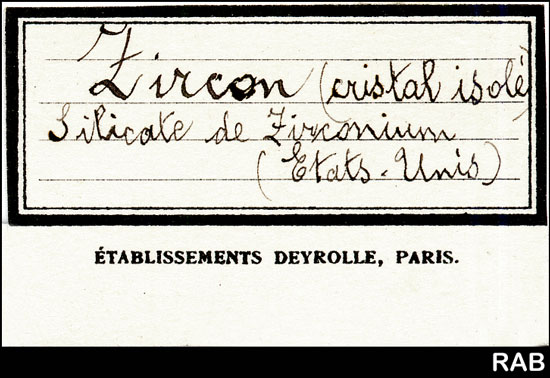 Zircon (cristal isolé)
Silicate de Zirconium
(Etats-Unis)
ÉTABLISSEMENTS DEYROLLE, PARIS.
RAB